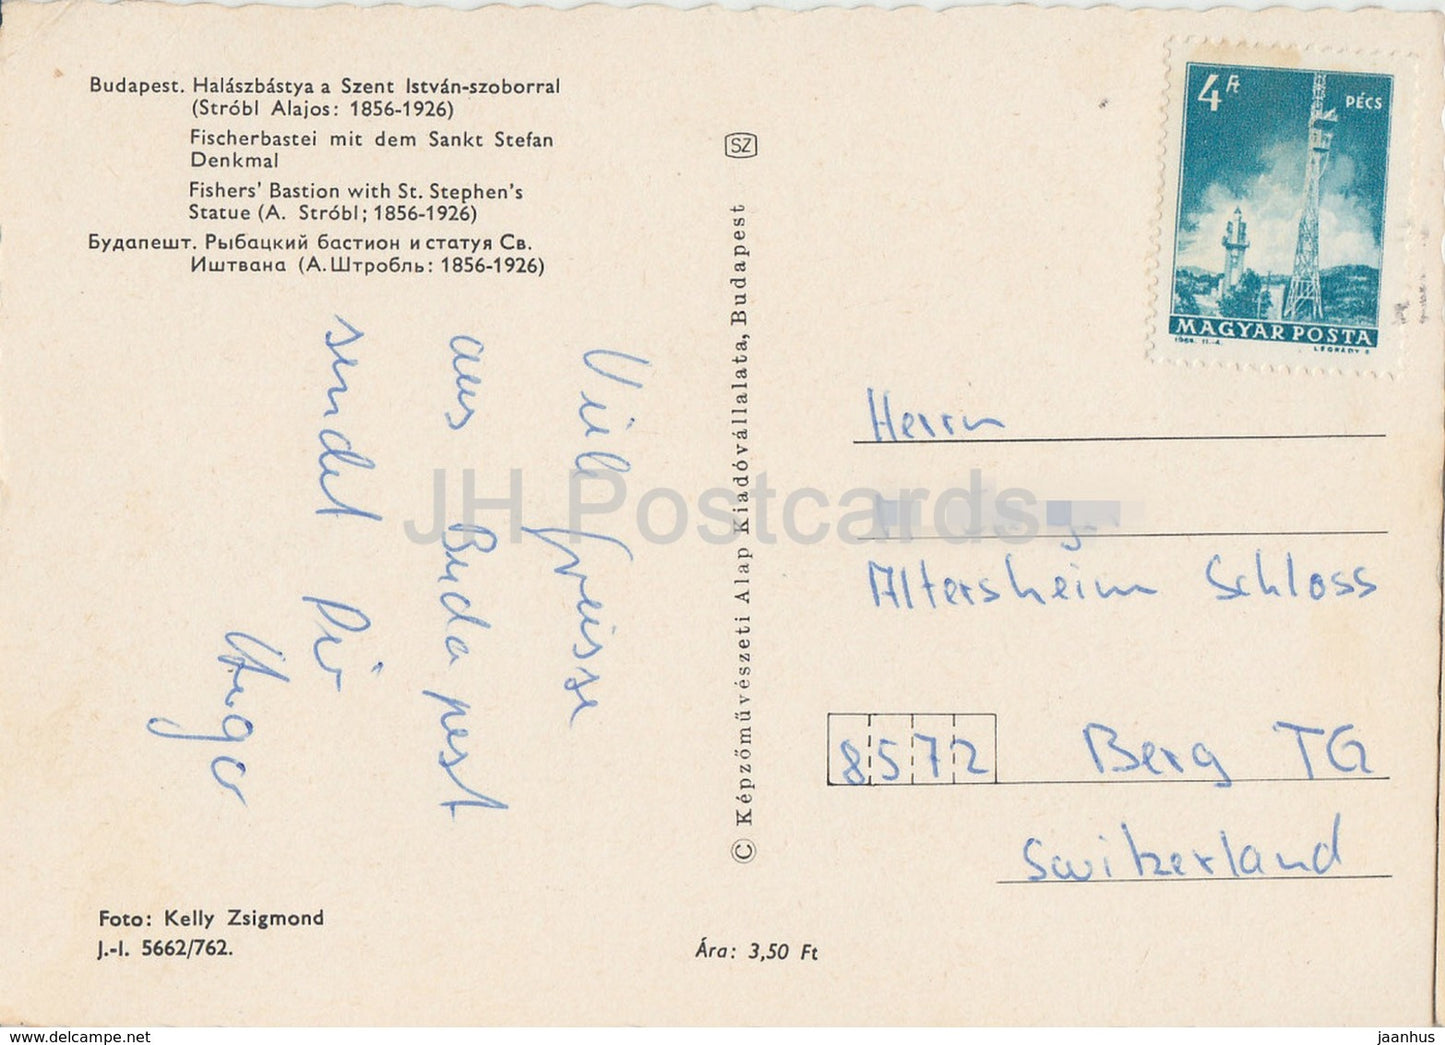 Budapest. Halászbástya a Szent István-szoborral
(Stróbl Alajos: 1856-1926)
Fischerbastei mit dem Sankt Stefan
Denkmal
Fishers' Bastion with St. Stephen's
Statue (A. Stróbl; 1856-1926)
Будапешт. Рыбацкий бастион и статуя Св.
Иштвана (А. Штробль: 1856-1926)
SZ
4 Ft
PÉCS
MAGYAR POSTA
LÉGRÁDY S
© Képzőművészeti Alap Kiadóvállalata, Budapest
Viele Greisse
aus Budapest
sendet Dir
Hugo
Herrn
Altersheim Schloss
8572 Berg TG
Switzerland
JH Postcards
Foto: Kelly Zsigmond
J.-I. 5662/762.
Ára: 3,50 Ft
delcampe.net
jaanhus